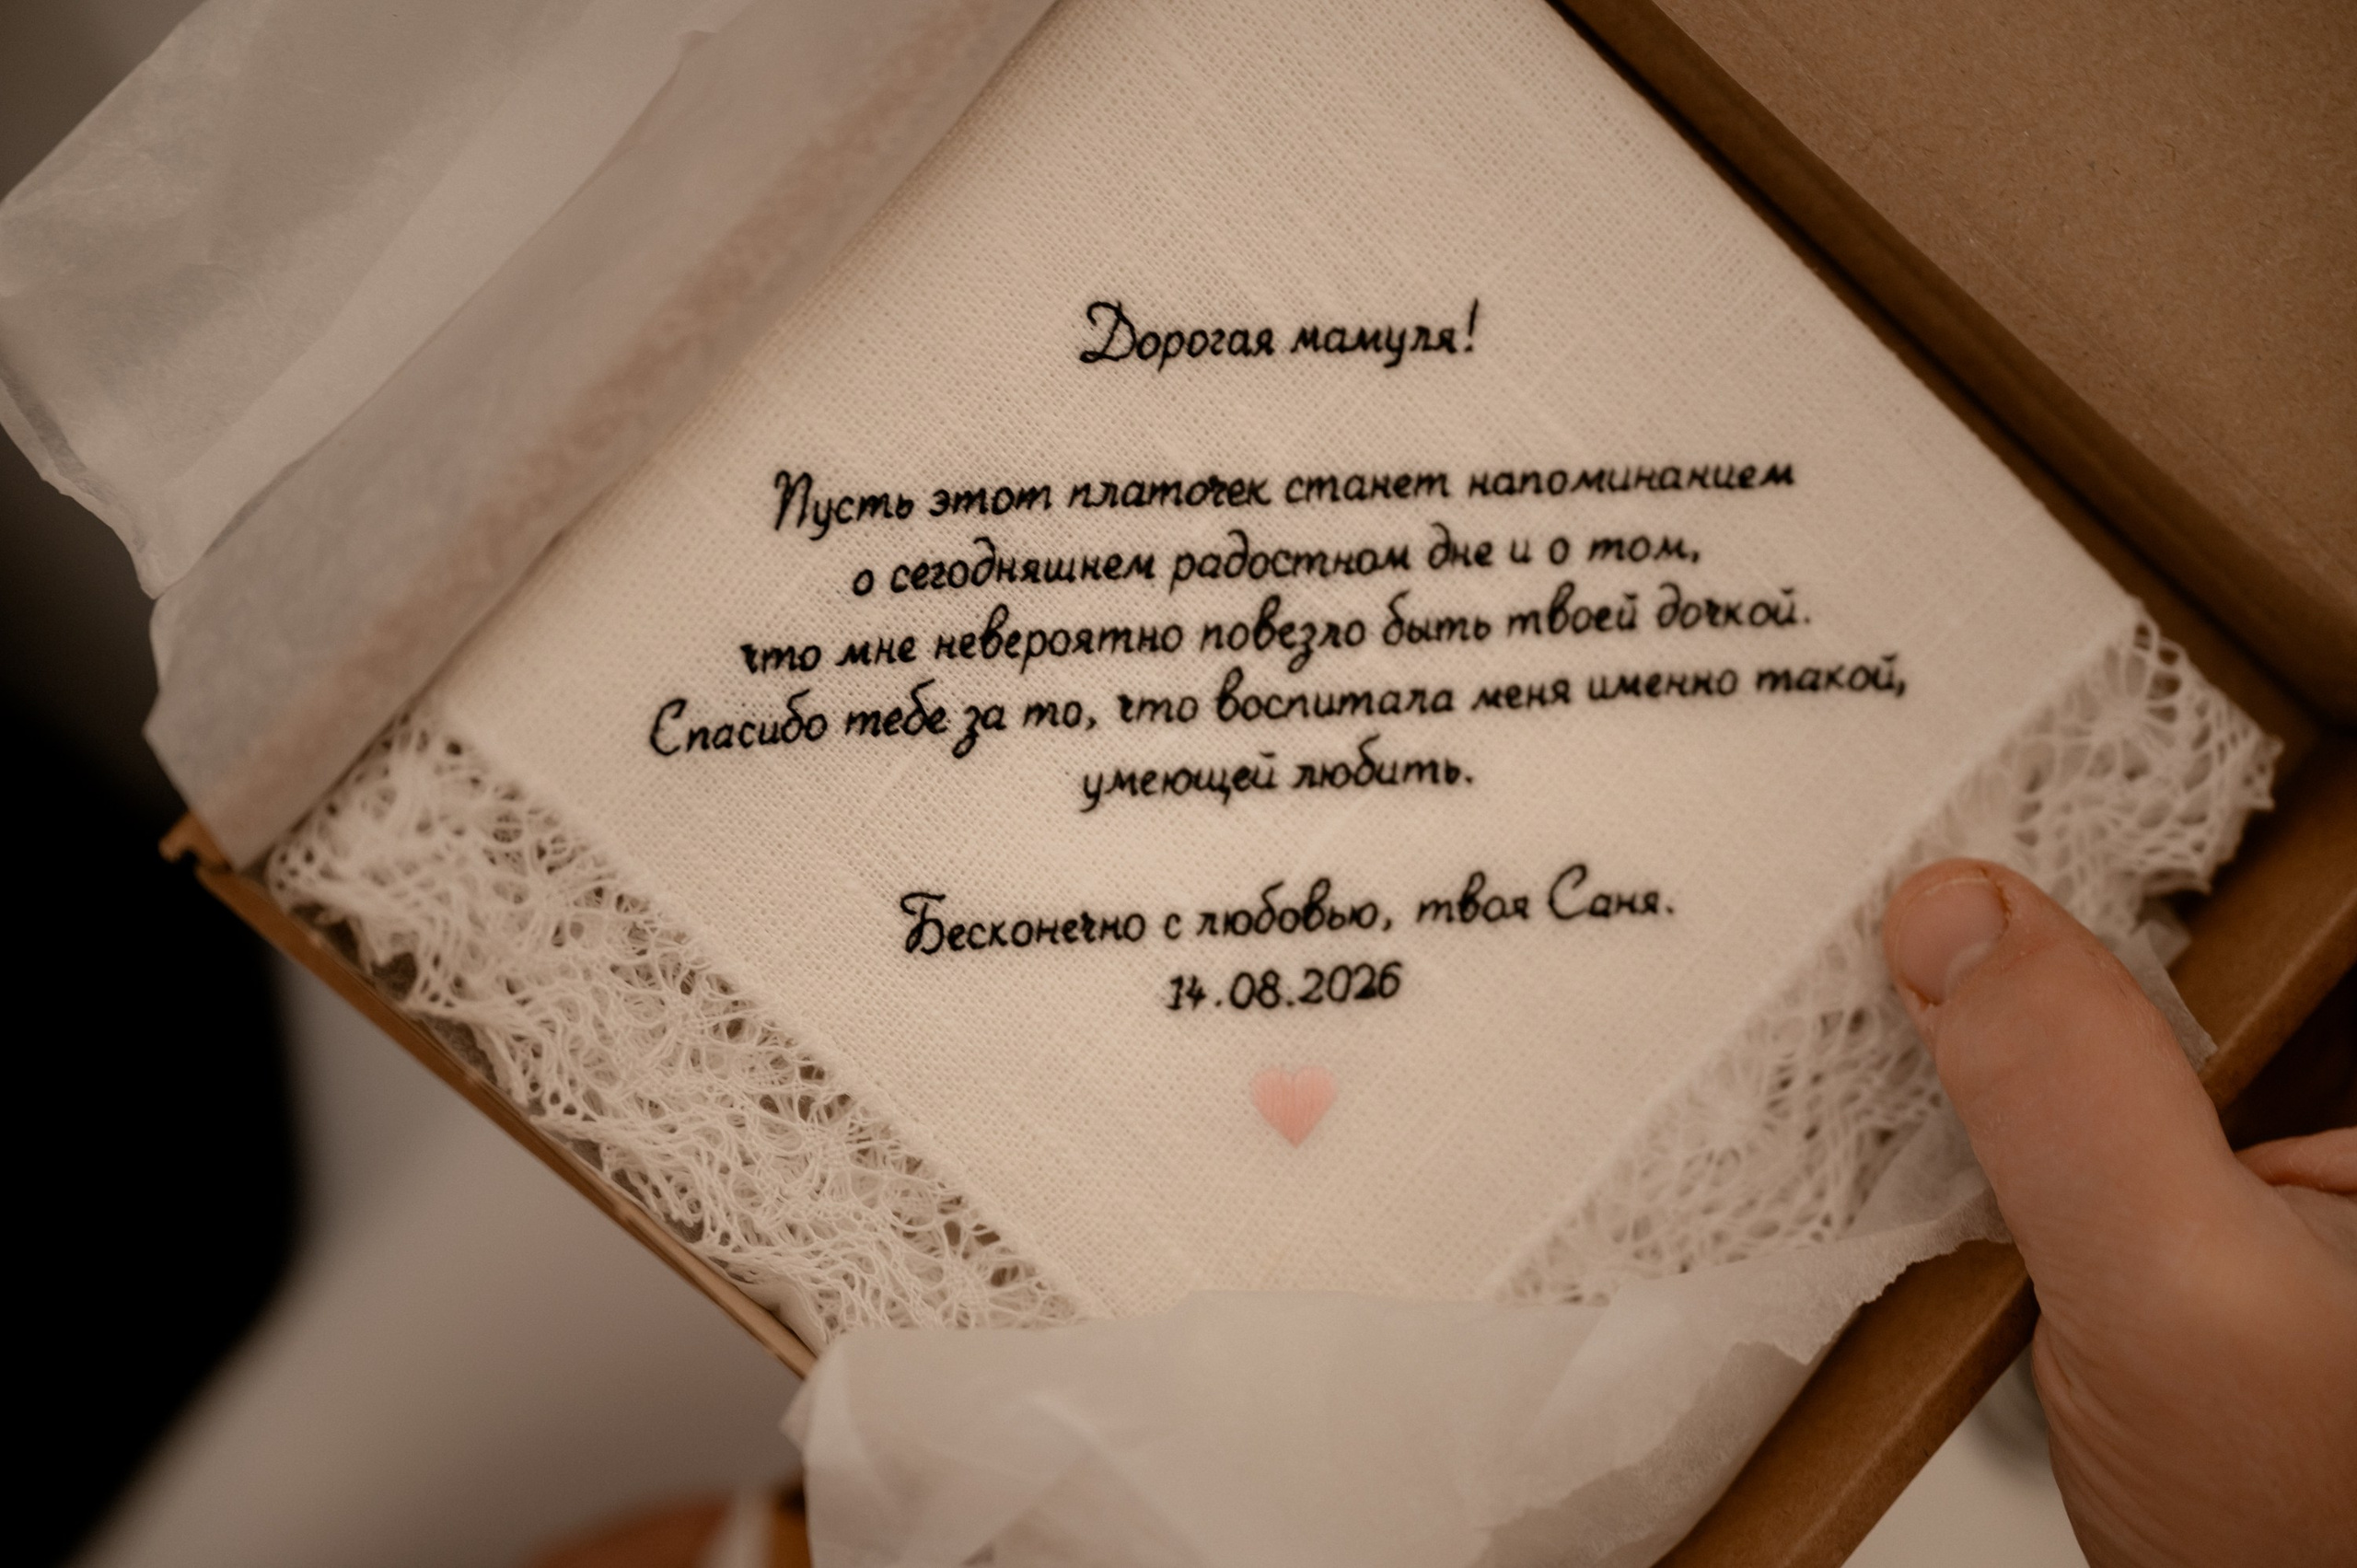 Дорогая мамуля!
Пусть этот платочек станет напоминанием
о сегодняшнем радостном дне и о том,
что мне невероятно повезло быть твоей дочкой.
Спасибо тебе за то, что воспитала меня именно такой,
умеющей любить.
Бесконечно с любовью, твоя Саня.
14.08.2026